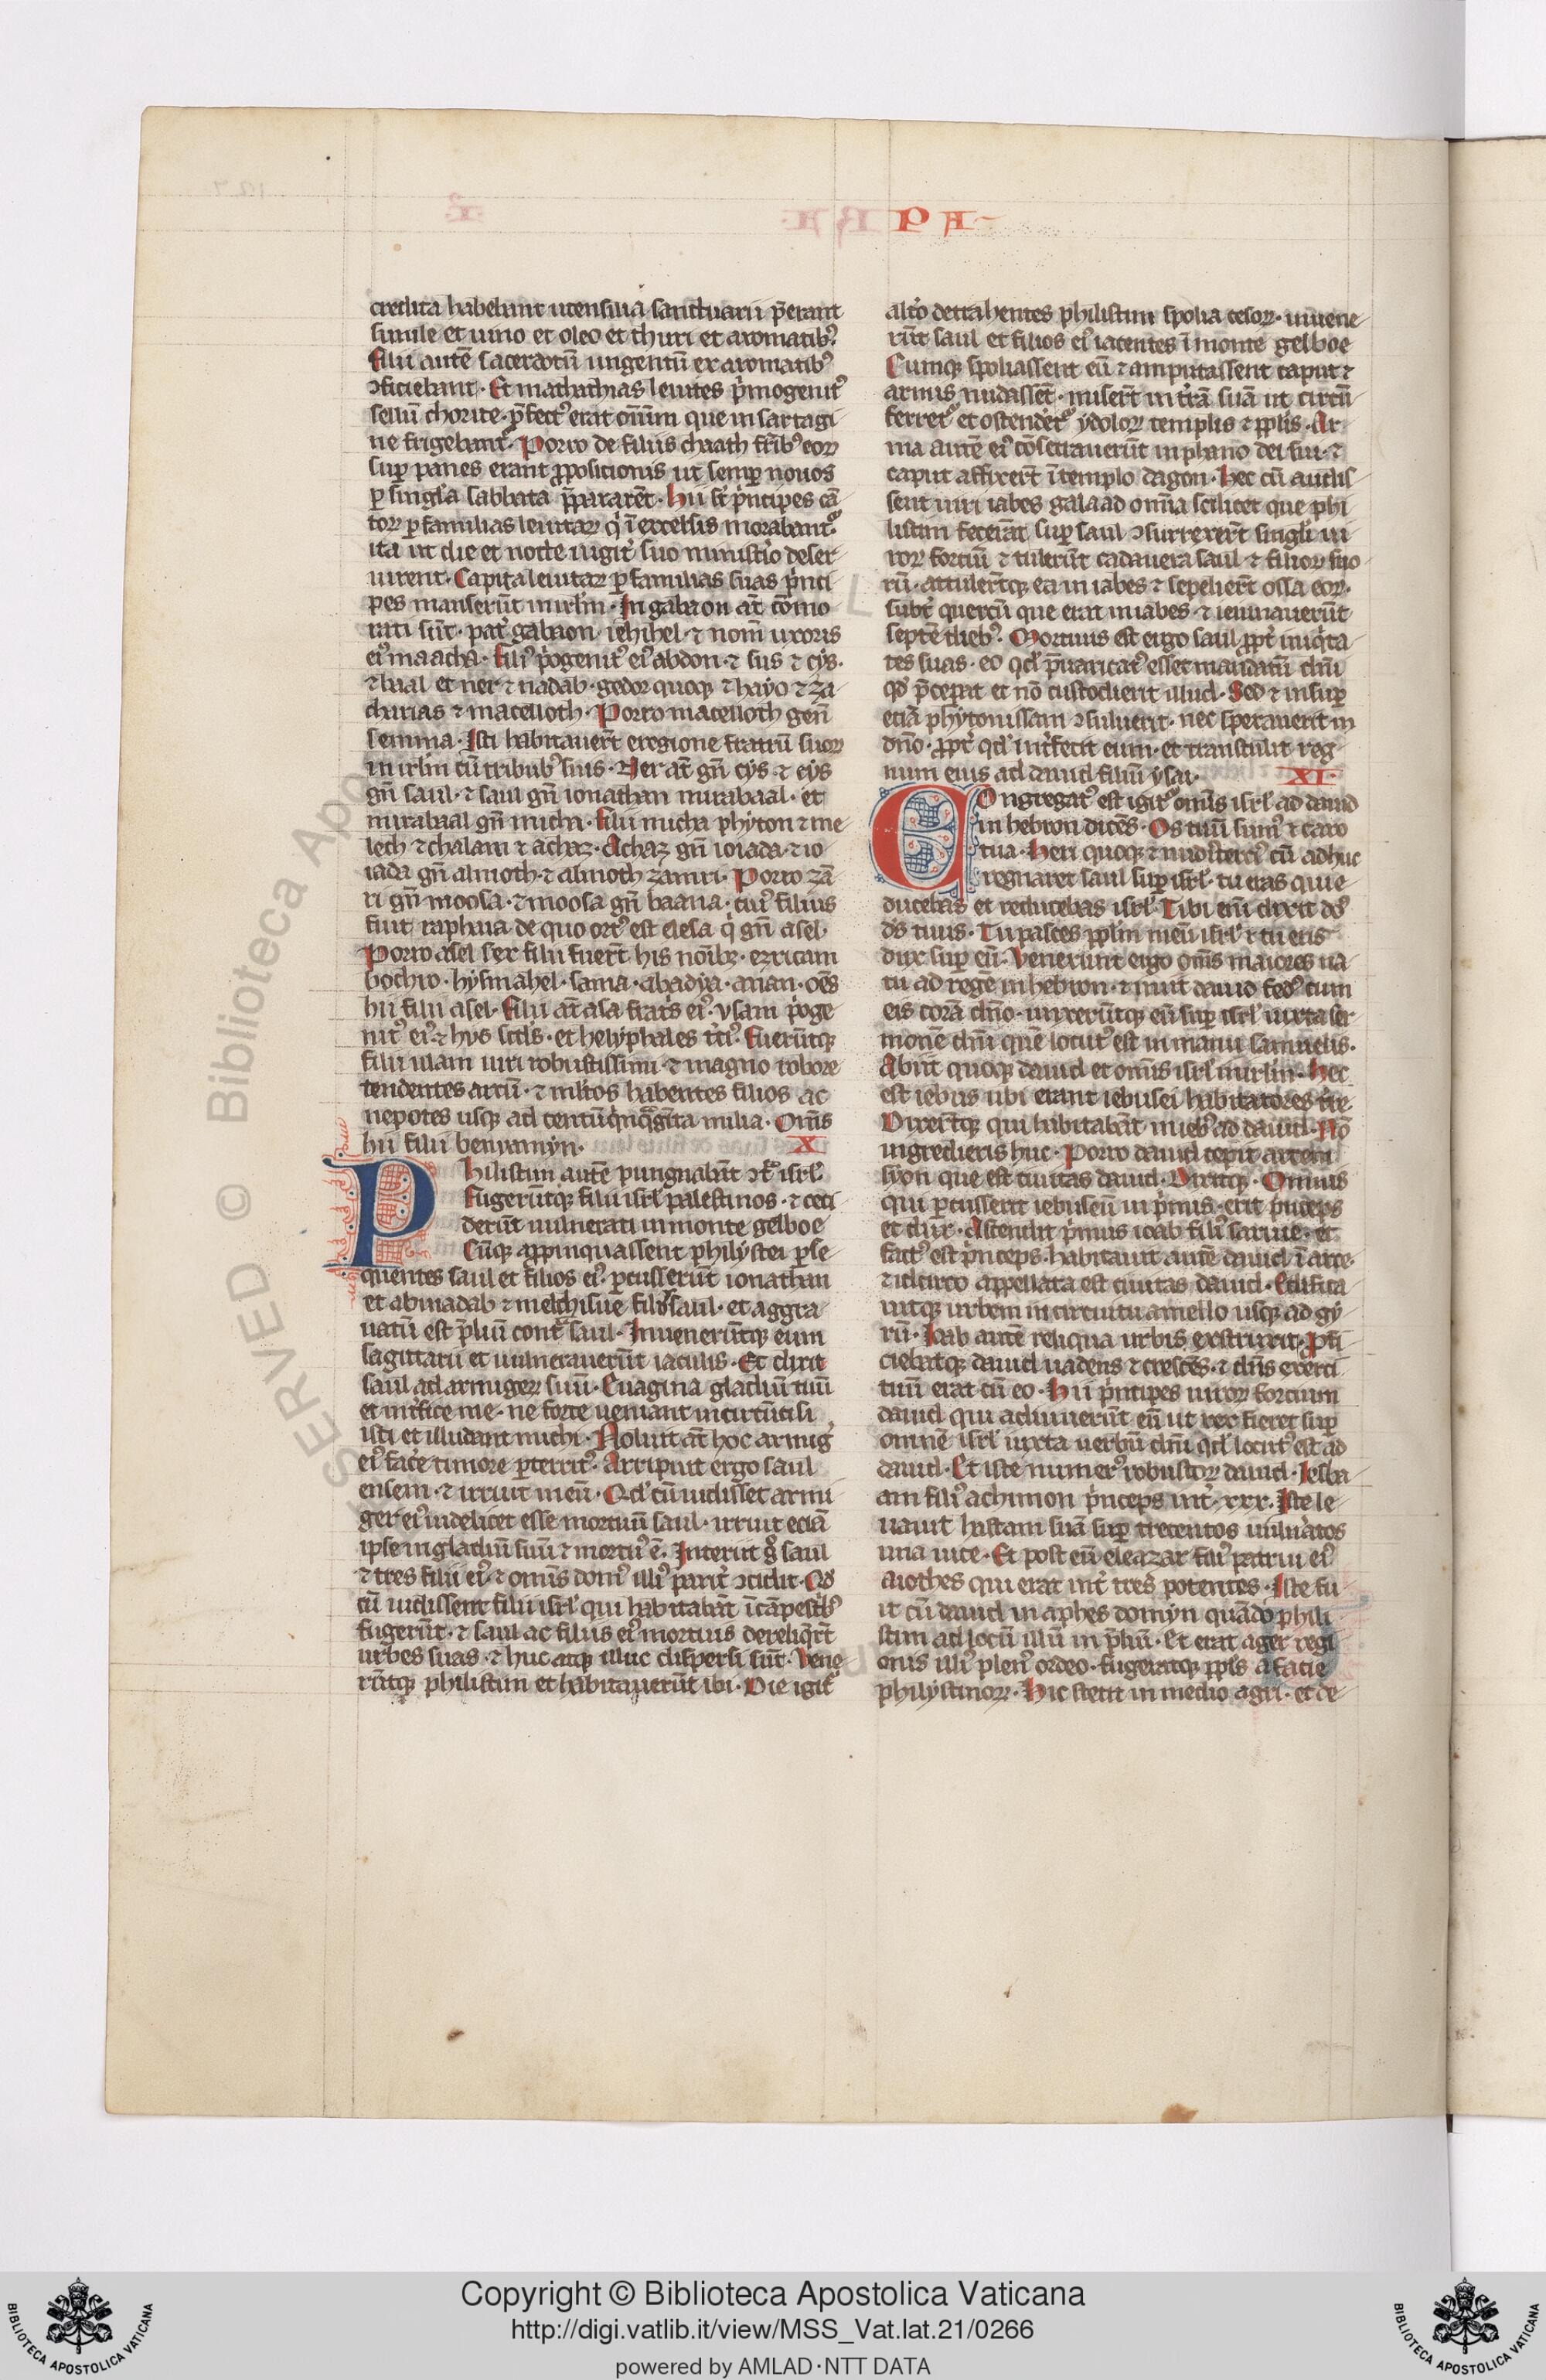 PA
credita habebant utensilia sanctuarii p̄erant
simile et uino et oleo et thuri et aromatibꝰ
Filii autē sacerdotū ungentū ex aromatibꝰ
ↄficiebant · Et mathathias leuites p̍mogenitꝰ
sellū chorite · p̄fectꝰ erat oīm que in sartagi
ne frigebantᷣ · Porro de filiis chaath fr̄ibꝰ eoꝝ
suꝑ panes erant ꝓpositionis ut semꝑ nouos
ꝑ singl̓a sabbata p̄pararēt · Hii sт̄ p̍ncipes cā
toꝝ ꝑ familias leuitaꝝ q̍ ī excelsis morabantᷣ
ita ut die et nocte iugit̓ suo ministio deser
uirent · Capita leuitaꝝ ꝑ familias suas p̍nci
pes manserūt in irlm̄ · In gabaon at̄ cōmo
rati sūt · pat̓ gabaon · iehihel · ⁊ nom̄ uxoris
eiꝰ maacha · Filiꝰ p̍ogenitꝰ eiꝰ abdon · ⁊ sus ⁊ cys ·
⁊ baal et ner ⁊ nadab · gedor quoqꝫ ⁊ hayo ⁊ za
charias ⁊ macelloth · Porro macelloth gen̄
semma · Isti habitauert̄ eregione fratrū suoꝝ
in irlm̄ cū tribubꝰ suis · Ner at̄ gn̄ cys · ⁊ cys
gn̄ saul · ⁊ saul gn̄ ionathan mirabaal · et
mirabaal gn̄ micha · Filii micha phyton ⁊ me
lech ⁊ chalam ⁊ achaz · Achaz gn̄ ioiada · ⁊ io
iada gn̄ almoth · ⁊ almoth zamri · Porro zā
ri gn̄ moosa · ⁊ moosa gn̄ baana · cuiꝰ filius
fuit raphaia de quo ortꝰ est elesa q̍ gn̄ asel ·
Porro asel sex filii fuert̄ his noībꝫ · ezricam
bochro · hysmahel · saria · abadya · anan · oēs
hii filii asel · Filii at̄ asa frat̓s eiꝰ · vlam p̍oge
nitꝰ eiꝰ · ⁊ hys scd̄s · et helyphales t̍ciꝰ · Fuerūtqꝫ
filii ulam uiri robustissimi · ⁊ magno robore
tendentes arcū · ⁊ ml̓tos habentes filios ac
nepotes usqꝫ ad centū q̍nq̄gīta milia · Om̄s
hii filii benyamyn · X
Philistiim autē pungnabāt ↄt̃ isrl̓
fugerūtqꝫ filii isrl̓ palestinos · ⁊ ceci
derūt uulnerati in monte gelboe
Cūqꝫ appinquassent philystei ꝑse
quentes saul et filios eiꝰ · ꝑcusserūt ionathan
et abinadab ⁊ melchisue filiꝰ saul · et aggra
uatū est p̄liū cont̃ saul · Inuenerūtqꝫ eum
sagittarii et uulnerauerūt iaculis · Et dixit
saul ad armigeꝝ suū · Euagina gladiū tuū
et int̓fice me · ne forte ueniant incircūcisi
isti et illudant michi · Noluit at̄ hoc armig̓
eiꝰ fac̓e timore ꝑterritꝰ · Arripuit ergo saul
ensem · ⁊ irruit in eū · Qd̓ cū uidisset armi
ger eiꝰ uidelicet esse mortuū saul · irruit eciā
ipse in gladiū suū ⁊ mortuꝰ ē · Interiit g̊ saul
⁊ tres filii eiꝰ ⁊ omīs domꝰ illiꝰ parit̓ ↄcidit · Qd̓
cū uidissent filii isrl̓ qui habitabāt ī cāpest̓bꝰ
fugerūt · ⁊ saul ac filiis eiꝰ mortuis dereliq̍rт̄
urbes suas · ⁊ huc atqꝫ illuc dispersi sūt · Vene
rūtqꝫ philistiim et habitauerūt ibi · Die igitᷣ
alt̓o detrahentes philistiim spolia cesoꝝ · inuene
rūt saul et filios eiꝰ iacentes ī monte gelboe
Cumqꝫ spoliassent eū ⁊ amputassent caput ⁊
armis nudassēt · misert̄ in t̓rā suā ut circū
ferretᷣ et ostenderetᷣ ydoloꝝ templis ⁊ ppl̓is · Ar
ma autē eiꝰ cōsecrauerūt in phano dei sui · ⁊
caput affixert̄ ī templo dagon · Hec cū audis
sent uiri iabes galaad omīa scilicet que phi
listiim feceīat suꝑ saul ↄsurrexert̄ singl̓i ui
roꝝ fortiū ⁊ tulerūt cadauera saul ⁊ filioꝝ suo
rū · attulert̄qꝫ ea in iabes ⁊ sepeliert̄ ossa eoꝝ ·
subt̓ quercū que erat in iabes · ⁊ ieiunauerūt
septē diebꝰ · Mortuus est ergo saul ꝓpt̓ iniq̍ta
tes suas · eo qd̓ p̄uaricatꝰ esset mandatū dn̄i
qd̓ p̄cepat et nō custodierit illud · Sed ⁊ insuꝑ
eciā phytonissam ↄsuluerit · nec sperauerit in
dn̄o · ꝓpt̓ qd̓ int̓fecit eum · et transtulit reg
num eius ad dauid filiū ysai · XI ·
Congregatꝰ est igitᷣ omīs isrl̓ ad dauid
in hebron dicēs · Os tuū sumꝰ ⁊ caro
tua · Heri quoqꝫ ⁊ nudꝰterciꝰ cū adhuc
regnaret saul suꝑ isrl̓ · tu eras qui e
ducebas et reducebas isrl̓ · Tibi enī dixit dꝰ̄
ds̄ tuus · Tu pasces ppl̓m meū isrl̓ ⁊ tu eris
dux suꝑ eū · Venerunt ergo om̄s maiores na
tu ad regē in hebron · ⁊ iniit dauid fedꝰ cum
eis corā dn̄o · unxerūtqꝫ eū suꝑ isrl̓ iuxta ser
monē dn̄i quē locutꝰ est in manu samuelis ·
Abiit quoqꝫ dauid et om̄is isrl̓ in irlm̄ · Hec
est iebus ubi erant iebusei habitatores t̓re ·
Dixert̄qꝫ qui habitabāt in iebꝰ ad dauid · Nō
ingredieris huc · Porro dauid cepit arcem
syon que est ciuitas dauid · Dixitqꝫ · Omnis
qui ꝑcusserit iebuseū in p̍mis · erit p̍nceps
et dux · Ascendit p̍mus ioab filiꝰ saruie · et
factꝰ est p̍nceps · habitauit autē dauid ī arce ·
⁊ idcirco appellata est ciuitas dauid · Edifica
uitqꝫ urbem in circuitu a mello usqꝫ ad gy
rū · Ioab autē reliqua urbis exstruxit · ꝓfi
ciebatqꝫ dauid uadens ⁊ crescēs · ⁊ dn̄s exerci
tuū erat cū eo · Hii p̍ncipes uiroꝝ fortium
dauid qui adiuuerūt eū ut rex fieret suꝑ
omnē isrl̓ iuxta uerbū dn̄i qd̓ locutꝰ est ad
dauid · Et iste numerꝰ robustoꝝ dauid · Iesba
am filiꝰ achimon p̍nceps int̓ · xxx · Iste le
uauit hastam suā suꝑ trecentos uuln̓atos
una uice · Et post eū eleazar filiꝰ patrui eiꝰ
aiothes qui erat int̓ tres potentes · Iste fu
it cū dauid in aphes domyn quādo phili
stiim ad locū illū in p̄liū · Et erat ager regi
onis illiꝰ plenꝰ ordeo · fugeratqꝫ ppl̓s a facie
philystinoꝝ · Hic stetit in medio agri · et de
RESERVED © Biblioteca Apo
Copyright © Biblioteca Apostolica Vaticana
http://digi.vatlib.it/view/MSS_Vat.lat.21/0266
powered by AMLAD·NTT DATA
BIBLIOTECA APOSTOLICA VATICANA
BIBLIOTECA APOSTOLICA VATICANA